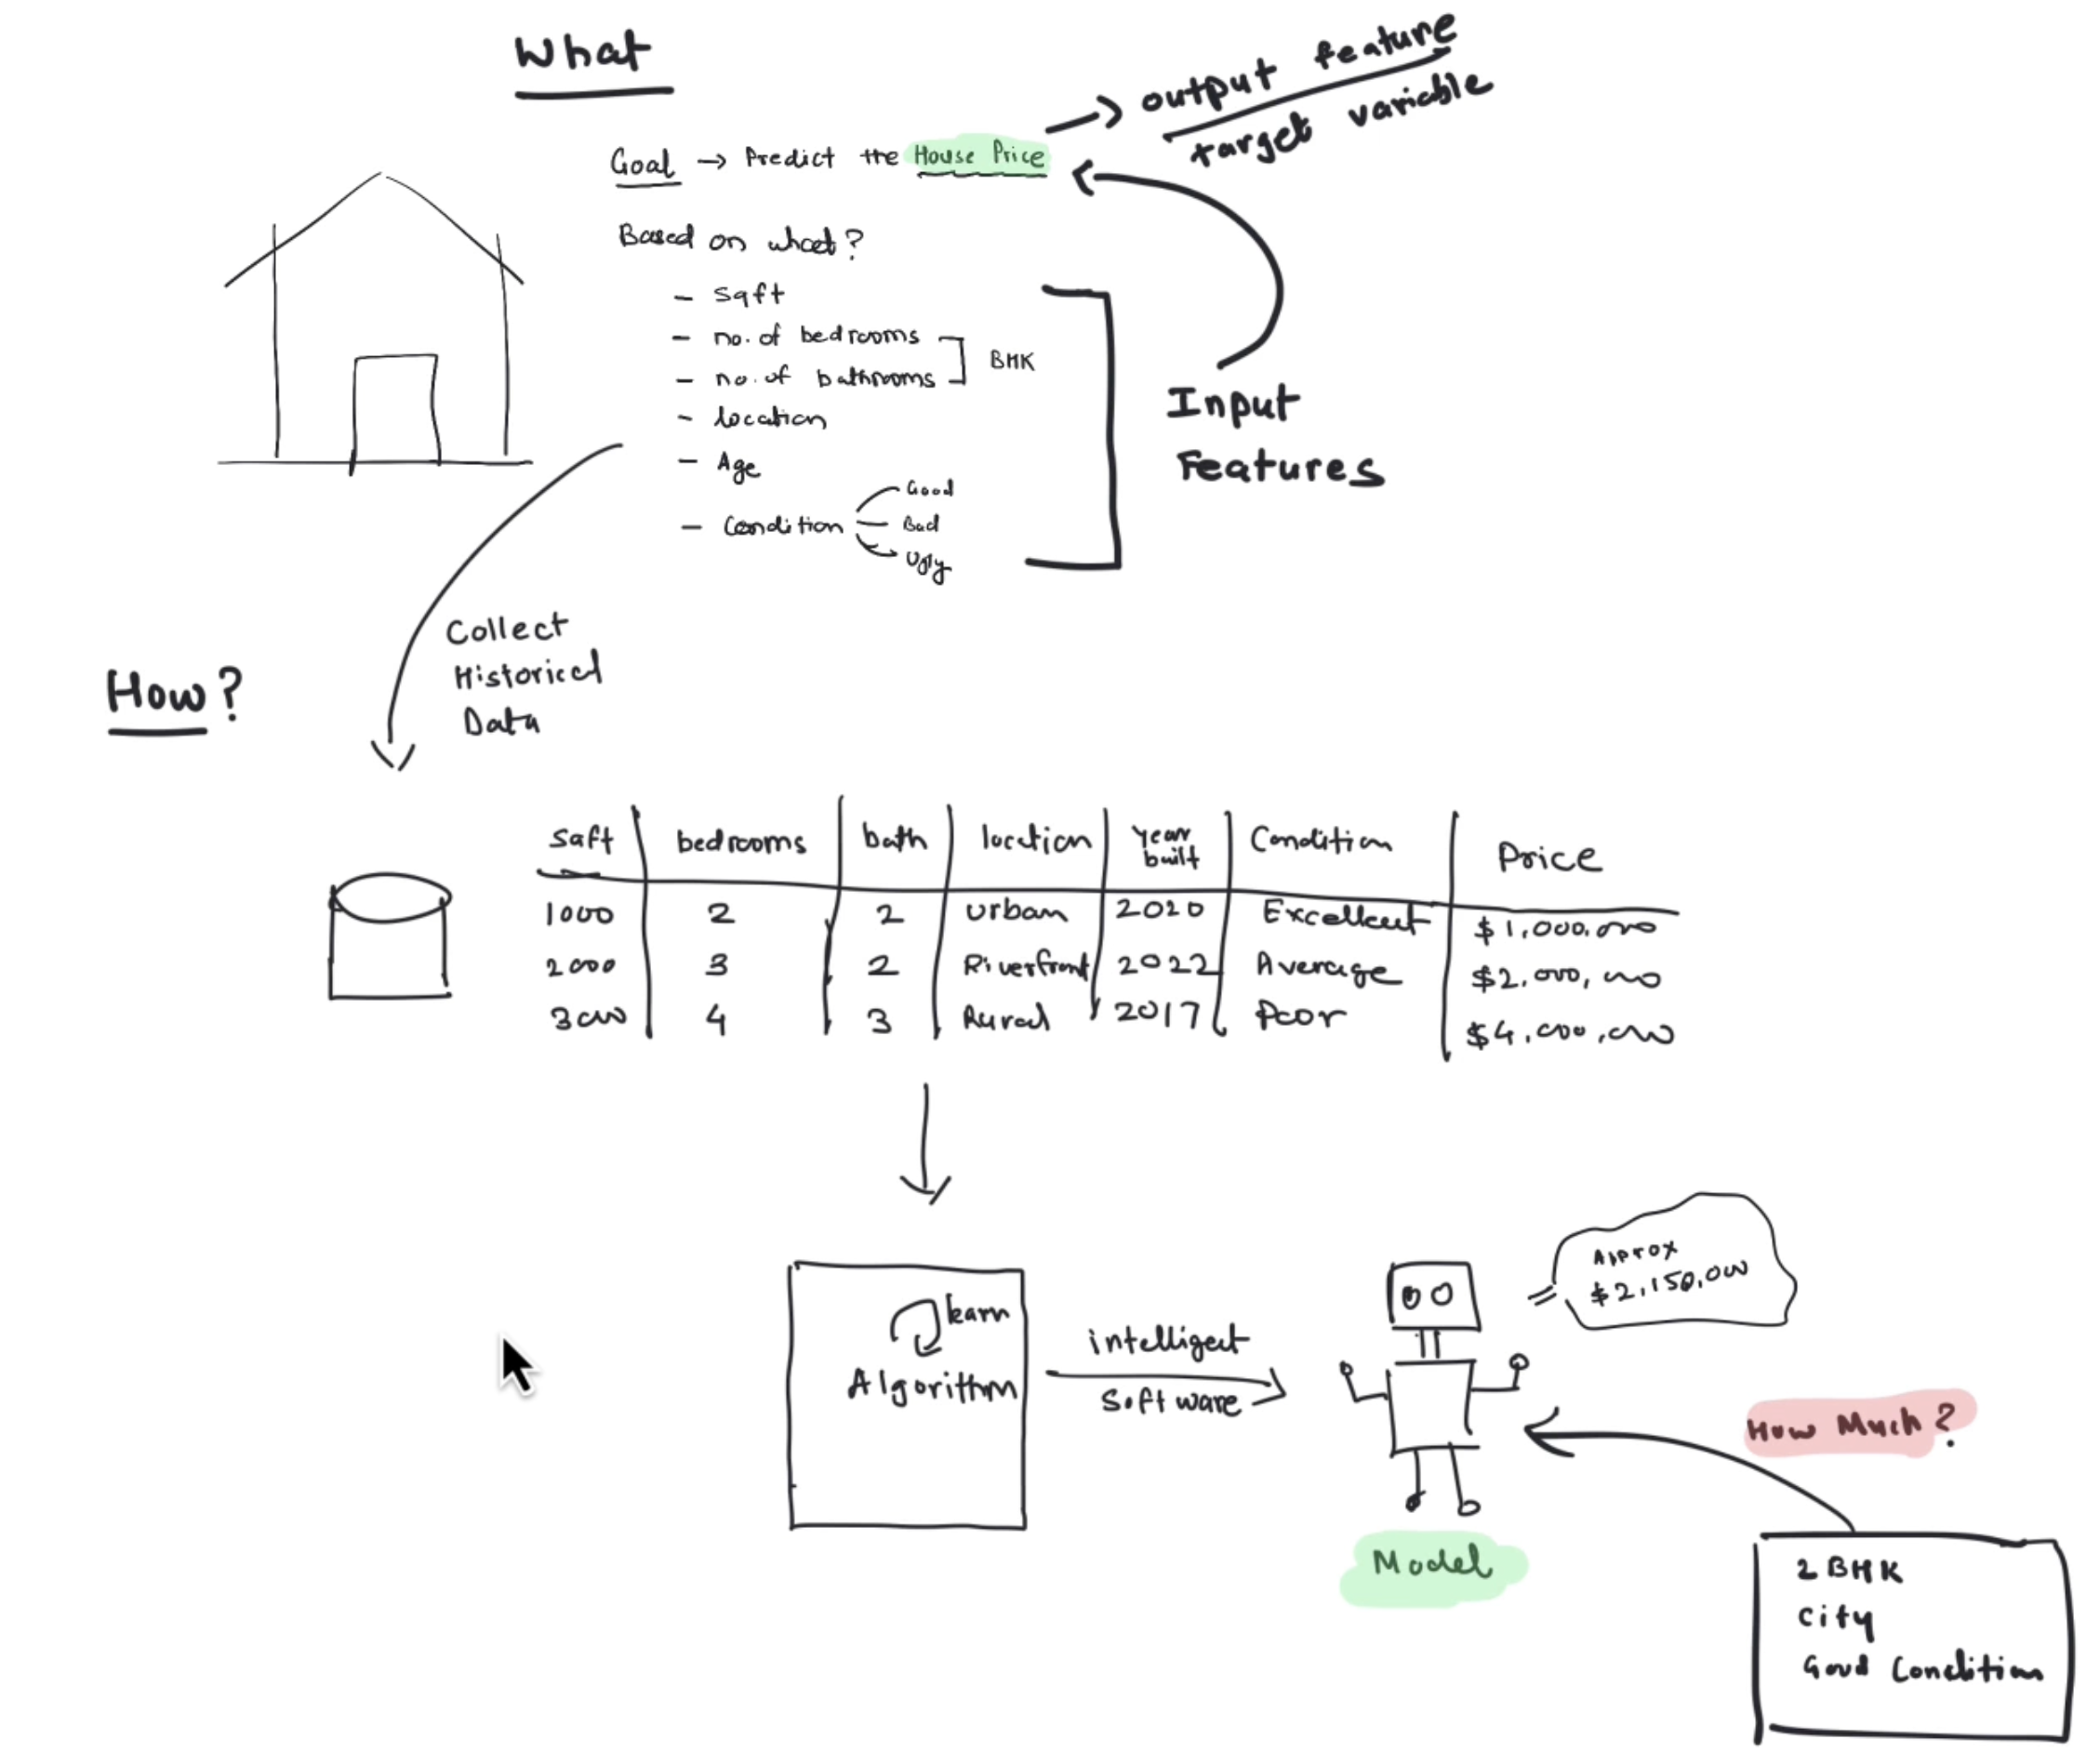 What
output feature
target variable
Goal → Predict the House Price
Based on what?
- Sqft
- no. of bedrooms
- no. of bathrooms
BHK
- location
- Age
- Condition
Good
Bad
Ugly
Input
Features
Collect
Historical
Data
How?
Sqft bedrooms bath location year built Condition Price
1000 2 2 Urban 2020 Excellent $1,000,000
2000 3 2 Riverfront 2022 Average $2,000,000
3000 4 3 Rural 2017 Poor $4,000,000
learn
Algorithm
intelligent
Software
Approx
$2,150,000
How Much?
Model
2 BHK
City
Good Condition